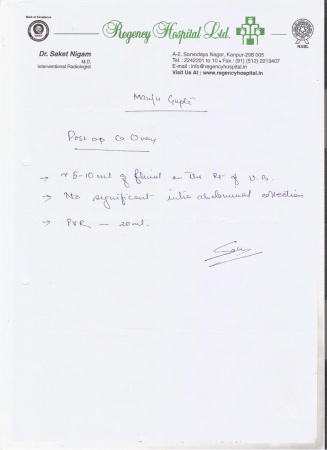 Mark of Excellence
Regency Hospital Ltd.
NABL
Dr. Saket Nigam
M.D.
Interventional Radiologist
A-2, Sarvodaya Nagar, Kanpur-208 005
Tel. : 2242201 to 10 • Fax : (91) (512) 2213407
E-mail : info@regencyhospital.in
Visit Us At : www.regencyhospital.in
Manju Gupta
Post op Ca Ovary
→ 5-10 ml of fluid on the Rt of U.B.
→ No significant intra abdominal collection
→ PVR — 20ml.